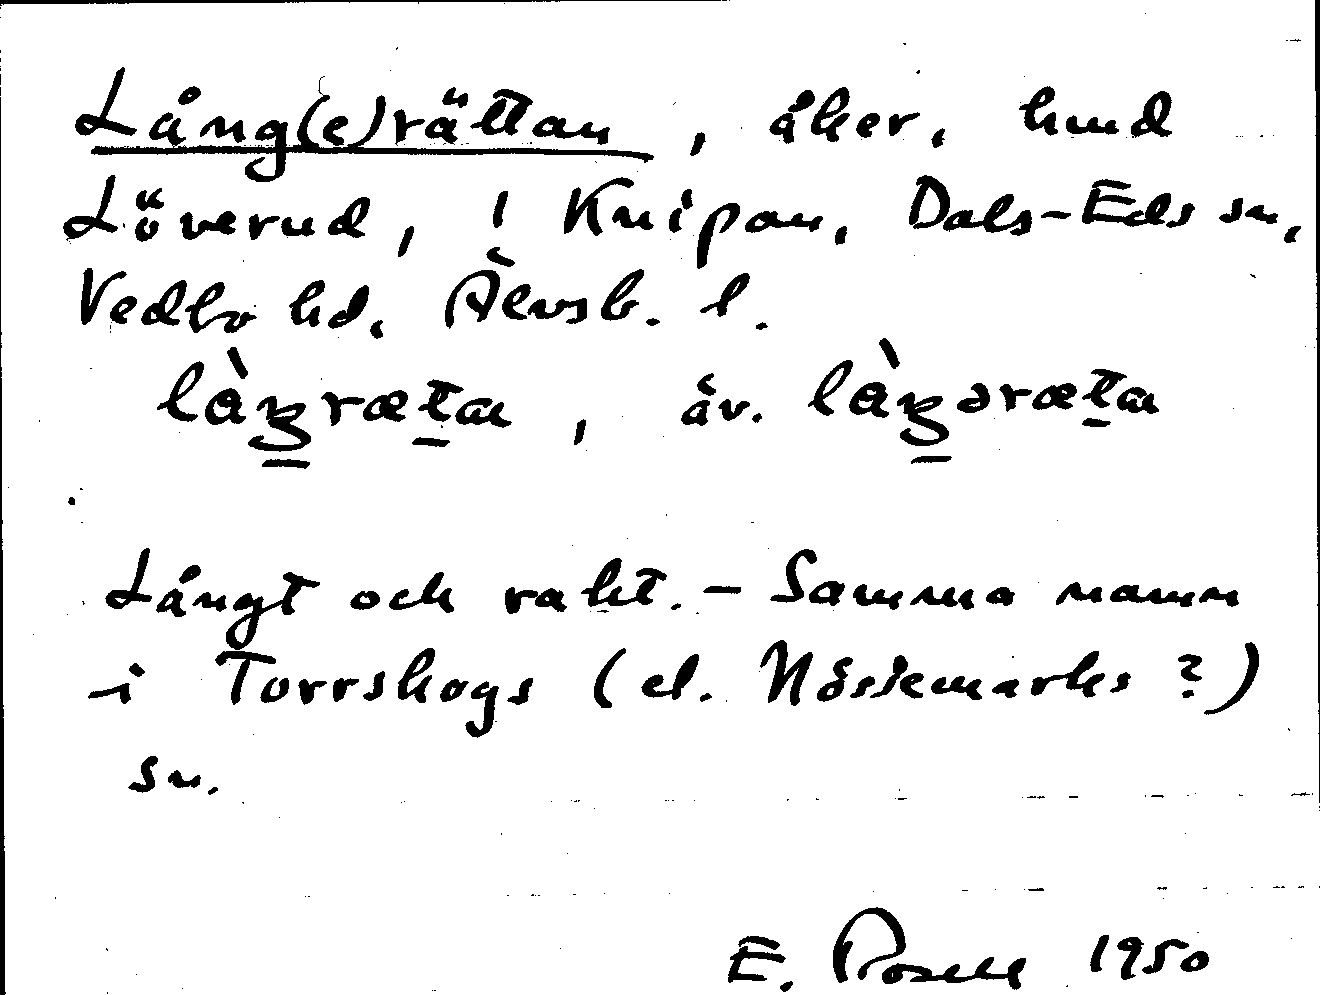 Lång(e)rättan, åker, hmd
Löverud, 1 Knipan, Dals-Eds sn,
Vedbo hd, Älvsb. l.
làŋræta, äv. làŋəræta
Långt och rakt. - Samma namn
i Torrskogs (el. Nössemarks ?)
sn.
E. Rosell 1950